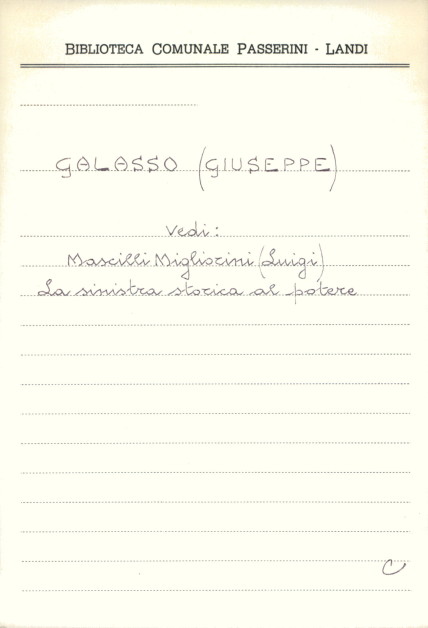 BIBLIOTECA COMUNALE PASSERINI - LANDI
GALASSO (GIUSEPPE)
Vedi:
Mascilli Migliorini (Luigi)
La sinistra storica al potere
C